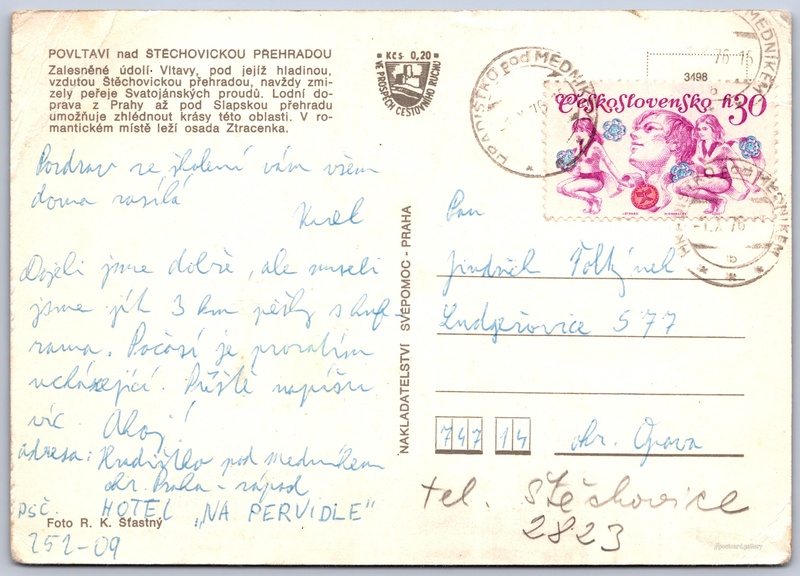 POVLTAVÍ nad ŠTĚCHOVICKOU PŘEHRADOU
Zalesněné údolí Vltavy, pod jejíž hladinou,
vzdutou Štěchovickou přehradou, navždy zmi-
zely peřeje Svatojánských proudů. Lodní do-
prava z Prahy až pod Slapskou přehradu
umožňuje zhlédnout krásy této oblasti. V ro-
mantickém místě leží osada Ztracenka.
Kčs 0,20
VE PROSPĚCH CESTOVNÍHO RUCHU
HRADIŠTKO pod MEDNÍKEM
MEDNÍKEM
76
3498
Československo h30
pod MEDNÍKEM
-1.X.76
Pozdrav ze školení vám všem
doma zasílá
Karel
Dojeli jsme dobře, ale museli
jsme jít 3 km pěšky s kuf-
rama. Počasí je prozatím
ucházející. Příště napíšu
víc. Ahoj!
adresa: Hradištko pod medníkem
okr. Praha - západ
HOTEL „NA PERVIDLE"
psč.
Foto R. K. Šťastný
252-09
NAKLADATELSTVÍ SVÉPOMOC - PRAHA
Pan
Jindřich
Ludgeřovice 577
747 14 okr. Opava
tel. Štěchovice
2823